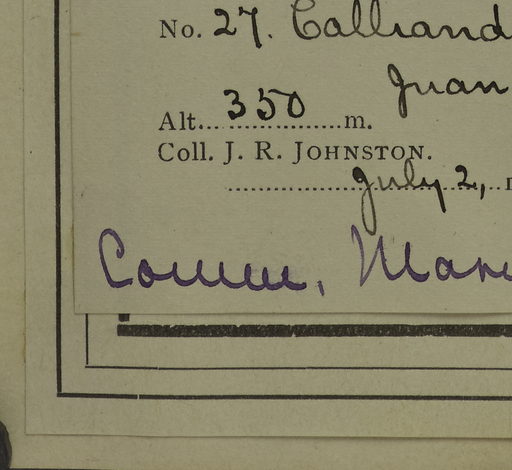 No. 27. Calliand
Juan
Alt. 350 m.
Coll. J. R. JOHNSTON.
July 2,
Comm.